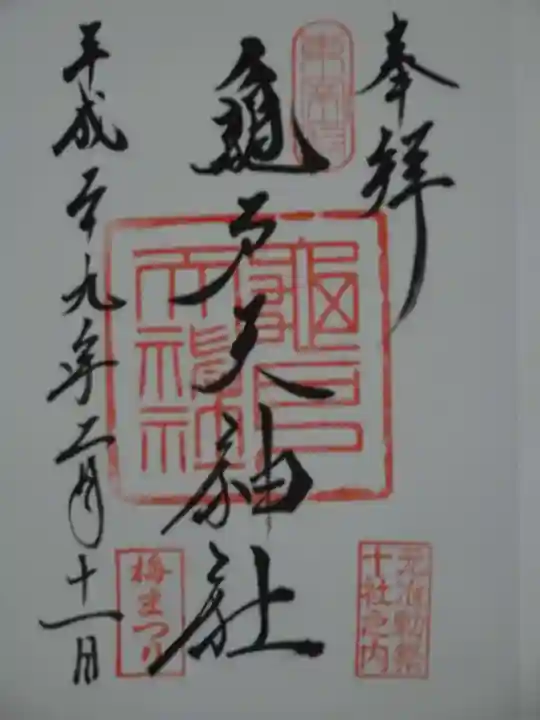 奉拝
東宰府
龜戸天神社
龜戸天神社
元准勅祭
十社之内
梅まつり
平成二十九年二月十一日